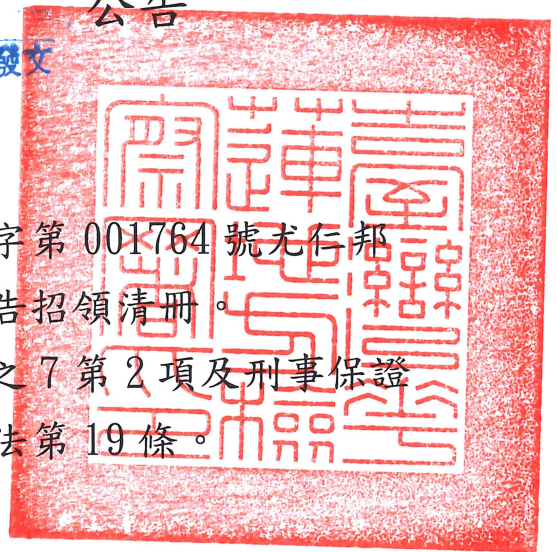 公告
發文
字第 001764 號尤仁邦
告招領清冊。
之 7 第 2 項及刑事保證
法第 19 條。
臺灣花
蓮地方檢
察署印